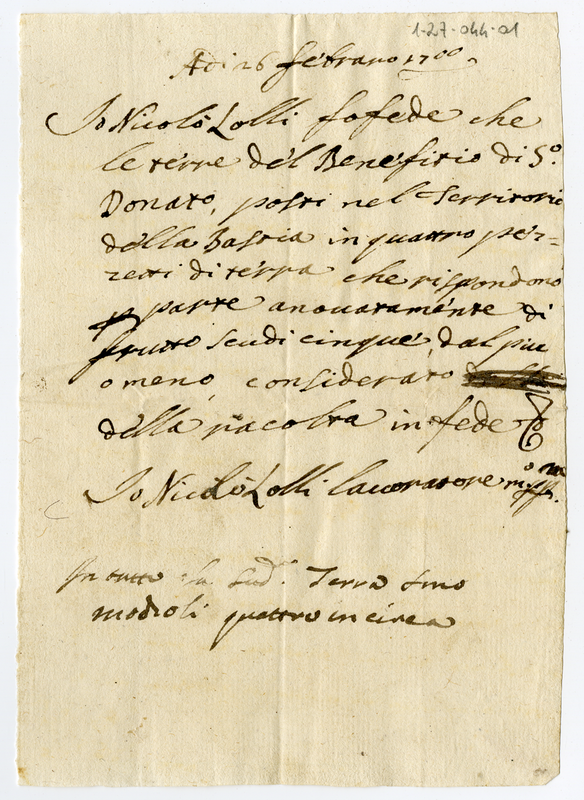 1-27-044-01
Adi 26 febraro 1700
Io Nicolò Lolli fo fede che
le terre del Benefitio di S.º
Donato, posti nel Territorio
della Bastia in quattro pez=
zetti di terra che rispondono
p parte anouatamente di
frutto scudi cinque, dal piu
o meno, considerato
della racolta in fede
Io Nicolò Lolli lauoratore mº pp.
In tutto la sud.ª Terra sono
modioli quattro in circa